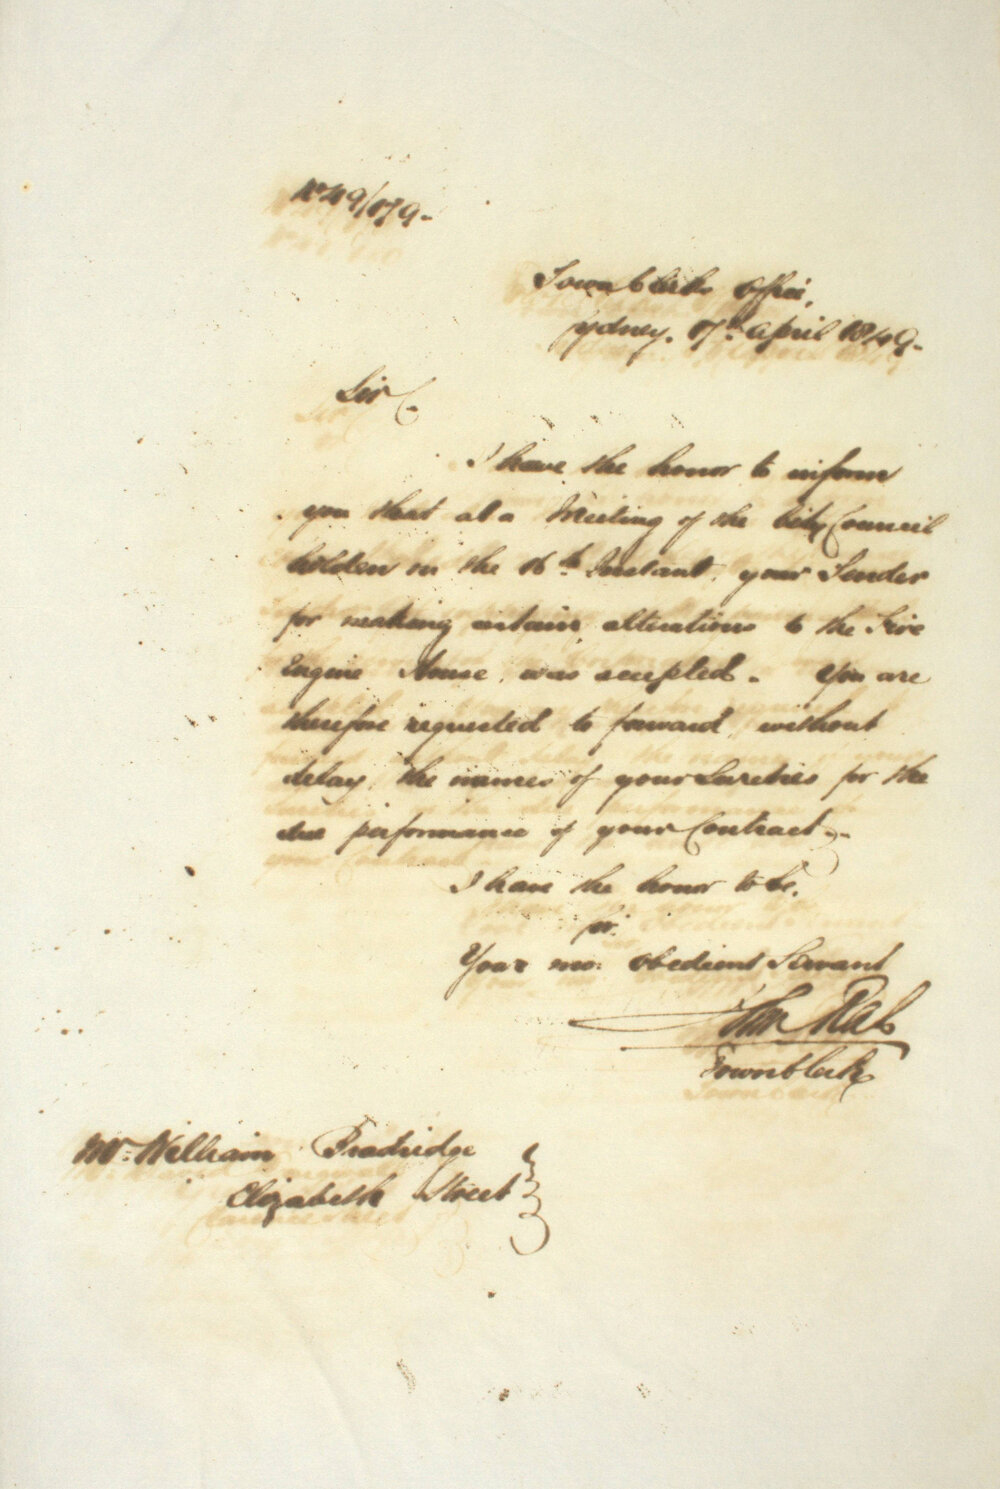 No 49/179-
Town Clerks Office,
Sydney. 17th April 1849-
Sir
I have the honor to inform
you that at a Meeting of the City Council
holden on the 16th Instant, your Tender
for making certain alterations to the Fire
Engine House, was accepted. You are
therefore requested to forward, without
delay, the names of your Sureties for the
due performance of your Contract.
I have the honor to be,
Sir.
Your mo: obedient Servant
John Rae
Town Clerk
Mr. William Bradridge
Elizabeth Street